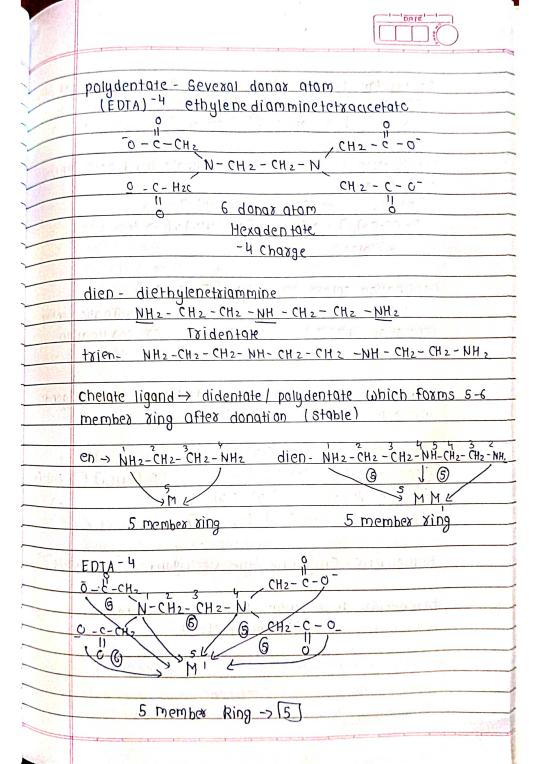 DATE
polydentate - Several donar atom
(EDTA)⁻⁴ ethylenediamminetetracetate
O O
|| ||
⁻O - C - CH₂ CH₂ - C - O⁻
N - CH₂ - CH₂ - N
O - C - H₂C CH₂ - C - O⁻
|| ||
O O
6 donar atom
Hexadentate
-4 Charge
dien - diethylenetriammine
NH₂ - CH₂ - CH₂ - NH - CH₂ - CH₂ - NH₂
Tridentate
trien- NH₂ - CH₂ - CH₂ - NH - CH₂ - CH₂ - NH - CH₂ - CH₂ - NH₂
chelate ligand → didentate / polydentate which forms 5-6
member ring after donation (stable)
1 2 3 4 1 2 3 4 5 4 3 2
en → NH₂ - CH₂ - CH₂ - NH₂ dien - NH₂ - CH₂ - CH₂ - NH - CH₂ - CH₂ - NH₂
⑥ ⑤
5 5
M M M
1
5 member ring 5 member ring
EDTA⁻⁴
O O
|| ||
O - C - CH₂ CH₂ - C - O⁻
⑥ 1 2 3 4
N - CH₂ - CH₂ - N
⑤ ⑤
O - C - CH₂ CH₂ - C - O-
|| ||
O ⑥ ⑤ O
5
M 1
5 member Ring → 5